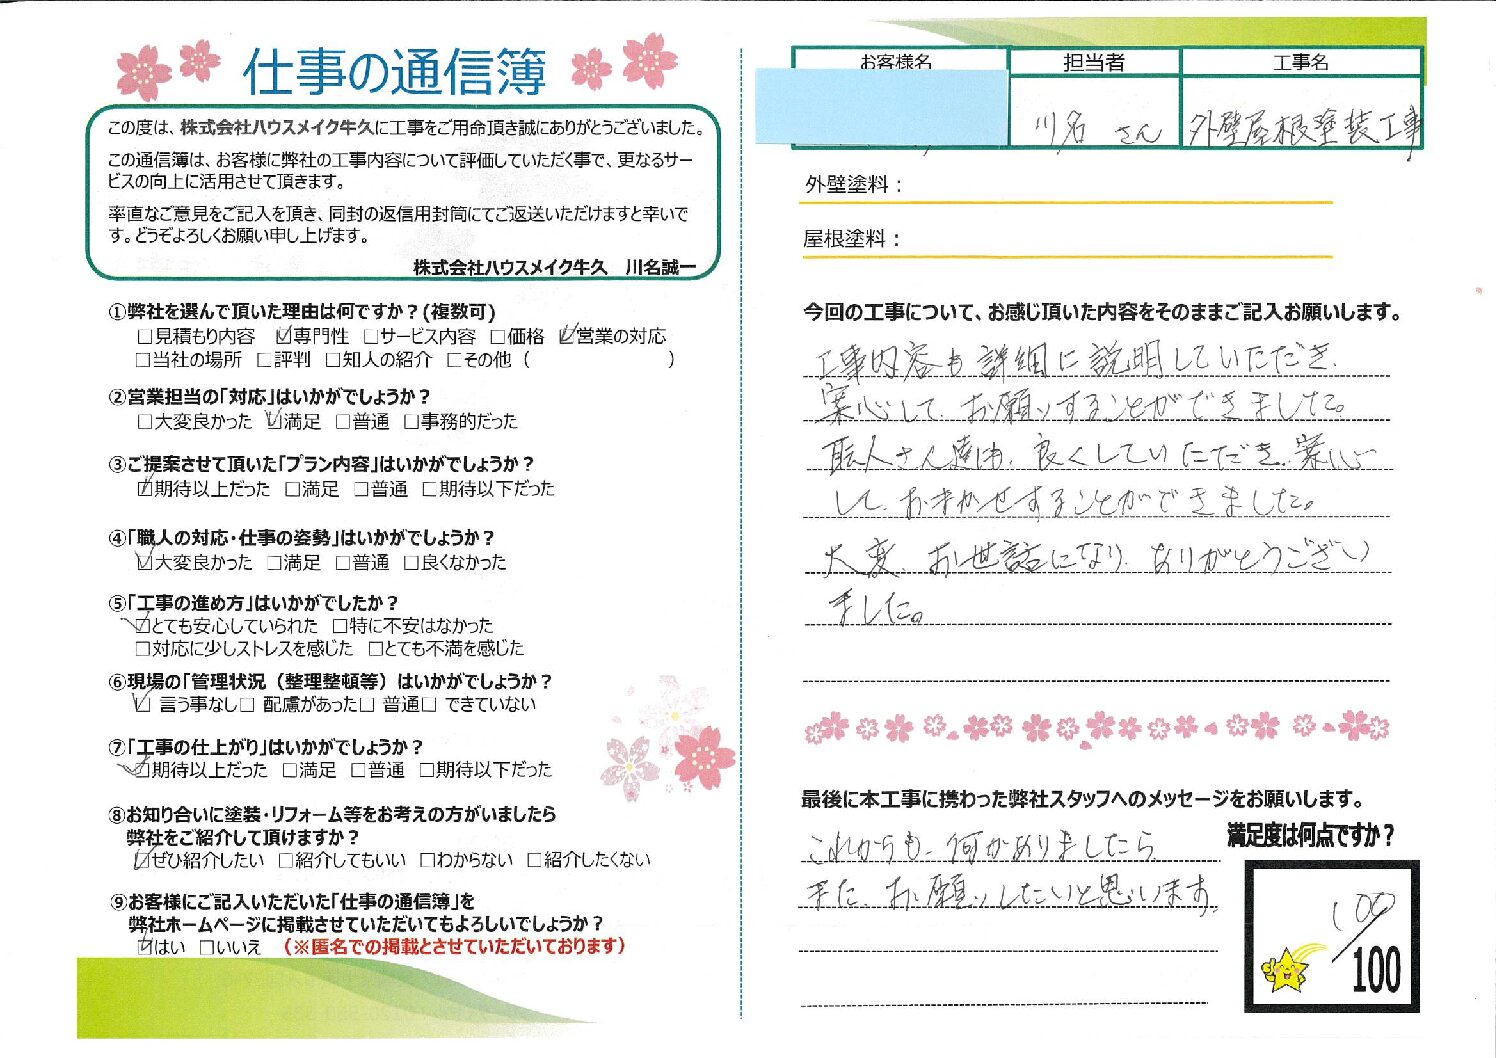 仕事の通信簿
この度は、株式会社ハウスメイク牛久に工事をご用命頂き誠にありがとうございました。
この通信簿は、お客様に弊社の工事内容について評価していただく事で、更なるサー
ビスの向上に活用させて頂きます。
率直なご意見をご記入を頂き、同封の返信用封筒にてご返送いただけますと幸いで
す。どうぞよろしくお願い申し上げます。
株式会社ハウスメイク牛久　川名誠一
①弊社を選んで頂いた理由は何ですか？(複数可)
□見積もり内容 ☑専門性 □サービス内容 □価格 ☑営業の対応
□当社の場所 □評判 □知人の紹介 □その他（　　　　　　　）
②営業担当の「対応」はいかがでしょうか？
□大変良かった ☑満足 □普通 □事務的だった
③ご提案させて頂いた「プラン内容」はいかがでしょうか？
☑期待以上だった □満足 □普通 □期待以下だった
④「職人の対応・仕事の姿勢」はいかがでしょうか？
☑大変良かった □満足 □普通 □良くなかった
⑤「工事の進め方」はいかがでしたか？
☑とても安心していられた □特に不安はなかった
□対応に少しストレスを感じた □とても不満を感じた
⑥現場の「管理状況（整理整頓等）はいかがでしょうか？
☑ 言う事なし□ 配慮があった□ 普通□ できていない
⑦「工事の仕上がり」はいかがでしょうか？
☑期待以上だった □満足 □普通 □期待以下だった
⑧お知り合いに塗装・リフォーム等をお考えの方がいましたら
弊社をご紹介して頂けますか？
☑ぜひ紹介したい □紹介してもいい □わからない □紹介したくない
⑨お客様にご記入いただいた「仕事の通信簿」を
弊社ホームページに掲載させていただいてもよろしいでしょうか？
☑はい □いいえ （※匿名での掲載とさせていただいております）
お客様名 担当者 工事名
川名 さん 外壁屋根塗装工事
外壁塗料：
屋根塗料：
今回の工事について、お感じ頂いた内容をそのままご記入お願いします。
工事内容も詳細に説明していただき、
安心して、お願いすることができました。
職人さん達も、良くしていただき、安心
して、おまかせすることができました。
大変、お世話になり、ありがとうござい
ました。
最後に本工事に携わった弊社スタッフへのメッセージをお願いします。
満足度は何点ですか？
これからも、何かありましたら、
また、お願いしたいと思います。
100
100